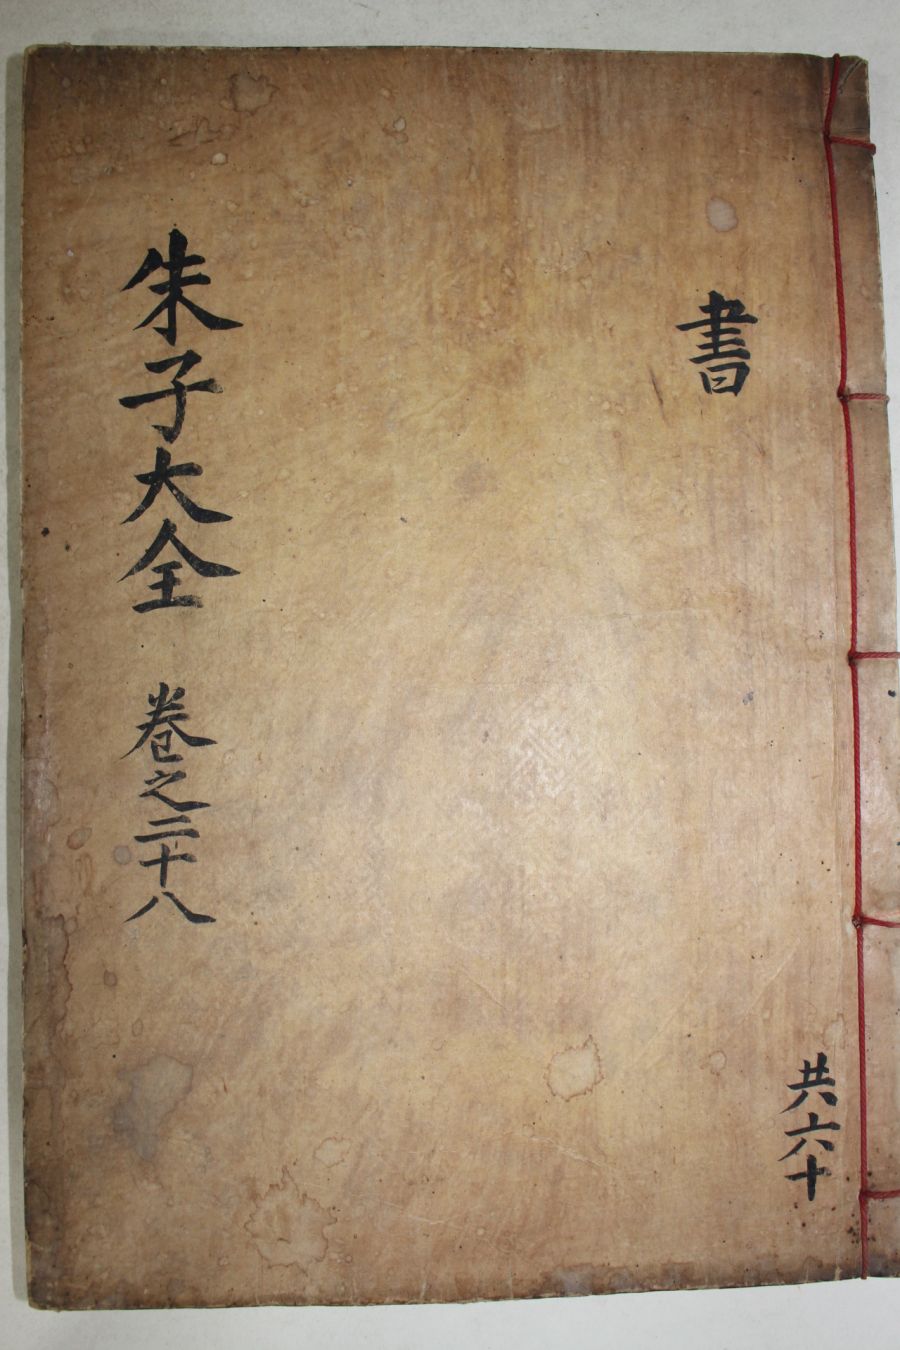 書
共六十
朱子大全 卷之二十八